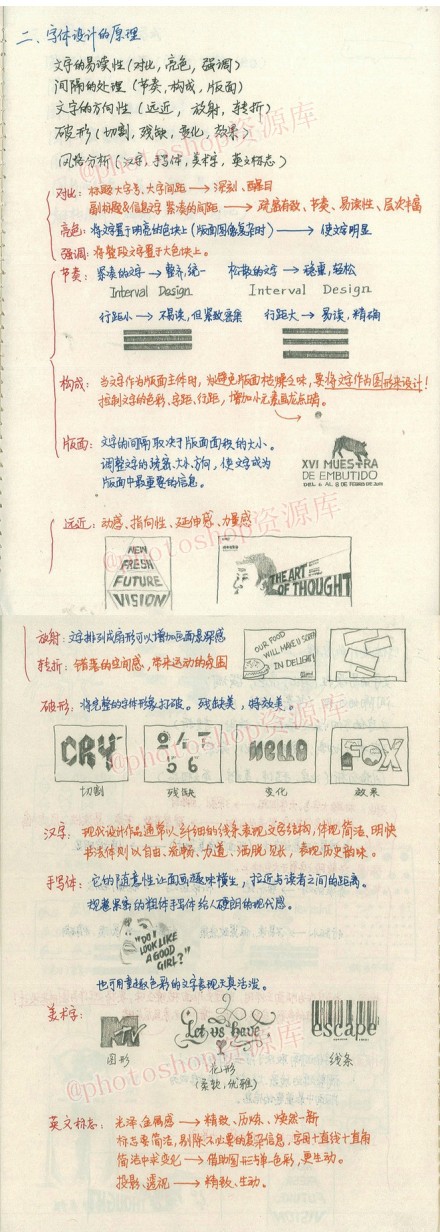 二、字体设计的原理
文字的易读性(对比,亮色,强调)
间隔的处理(节奏,构成,版面)
文字的方向性(远近,放射,转折)
破形(切割,残缺,变化,效果)
风格分析(汉字,手写体,美术字,英文标志)
对比:标题大字号、大字间距→深刻、醒目
副标题&信息文字 紧凑的间距→疏密有致、节奏、易读性、层次丰富
亮色:将文字置于明亮的色块上(版面图像复杂时)→使文字明显
强调:将整段文字置于大色块上。
节奏:紧凑的文字→整齐,统一 松散的文字→稳重,轻松
Interval Design Interval Design
行距小→不易读,但紧致密集 行距大→易读,精确
构成:当文字作为版面主体时,为避免版面枯燥乏味,要将文字作为图形来设计!
控制文字的色彩、字距、行距,增加小元素画龙点睛。
版面:文字的间隔取决于版面面积的大小。
调整文字的疏密、大小、方向,使文字成为
版面中最重要的信息。
XVI MUESTRA
DE EMBUTIDO
DEL 6 AL 8 DE FEBRERO DE
远近:动感、指向性、延伸感、力量感
NEW
FRESH
FUTURE
VISION
THE ART
OF THOUGHT
放射:文字排列成扇形可以增加画面景深感
转折:错落的空间感,带来运动的氛围
OUR FOOD
WILL MAKE U SCREAM
IN DELIGHT!
破形:将完整的字体形象打破。残缺美,特效美。
CRY
MELLO
FOX
切割 残缺 变化 效果
汉字:现代设计作品通常以纤细的线条表现文字结构,体现简洁、明快
书法体则以自由、流畅、力道、洒脱见长,表现历史韵味。
手写体:它的随意性让画面趣味横生,拉近与读者之间的距离。
规整果断的粗体手写体给人硬朗的现代感。
"DO I
LOOK LIKE
A GOOD
GIRL?"
也可用童趣色彩的文字表现天真活泼。
美术字:
Let us have
escape
图形 花形 线条
(柔软,优雅)
英文标志:光泽、金属感→精致、历练、焕然一新
标志要简洁,剔除不必要的复杂信息,常用+直线+直角
简洁中求变化→借助图形与单一色彩,更生动。
投影、透视→精致、生动。
@photoshop资源库
@photoshop资源库
@photoshop资源库
@photoshop资源库